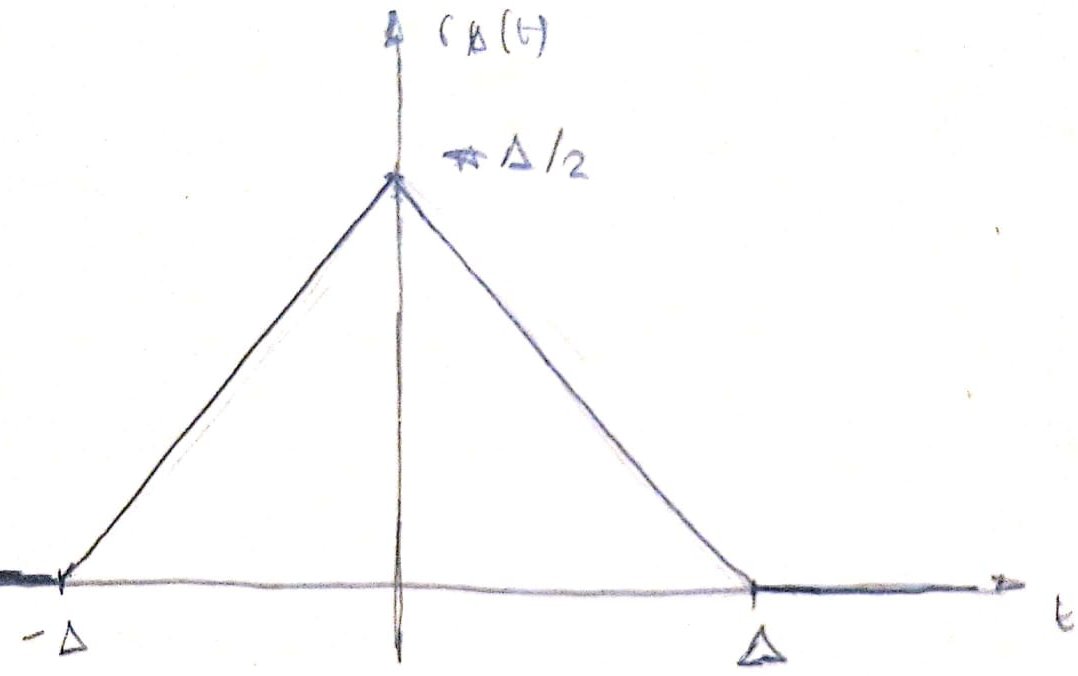 r_Δ(t)
Δ/2
-Δ
Δ
t